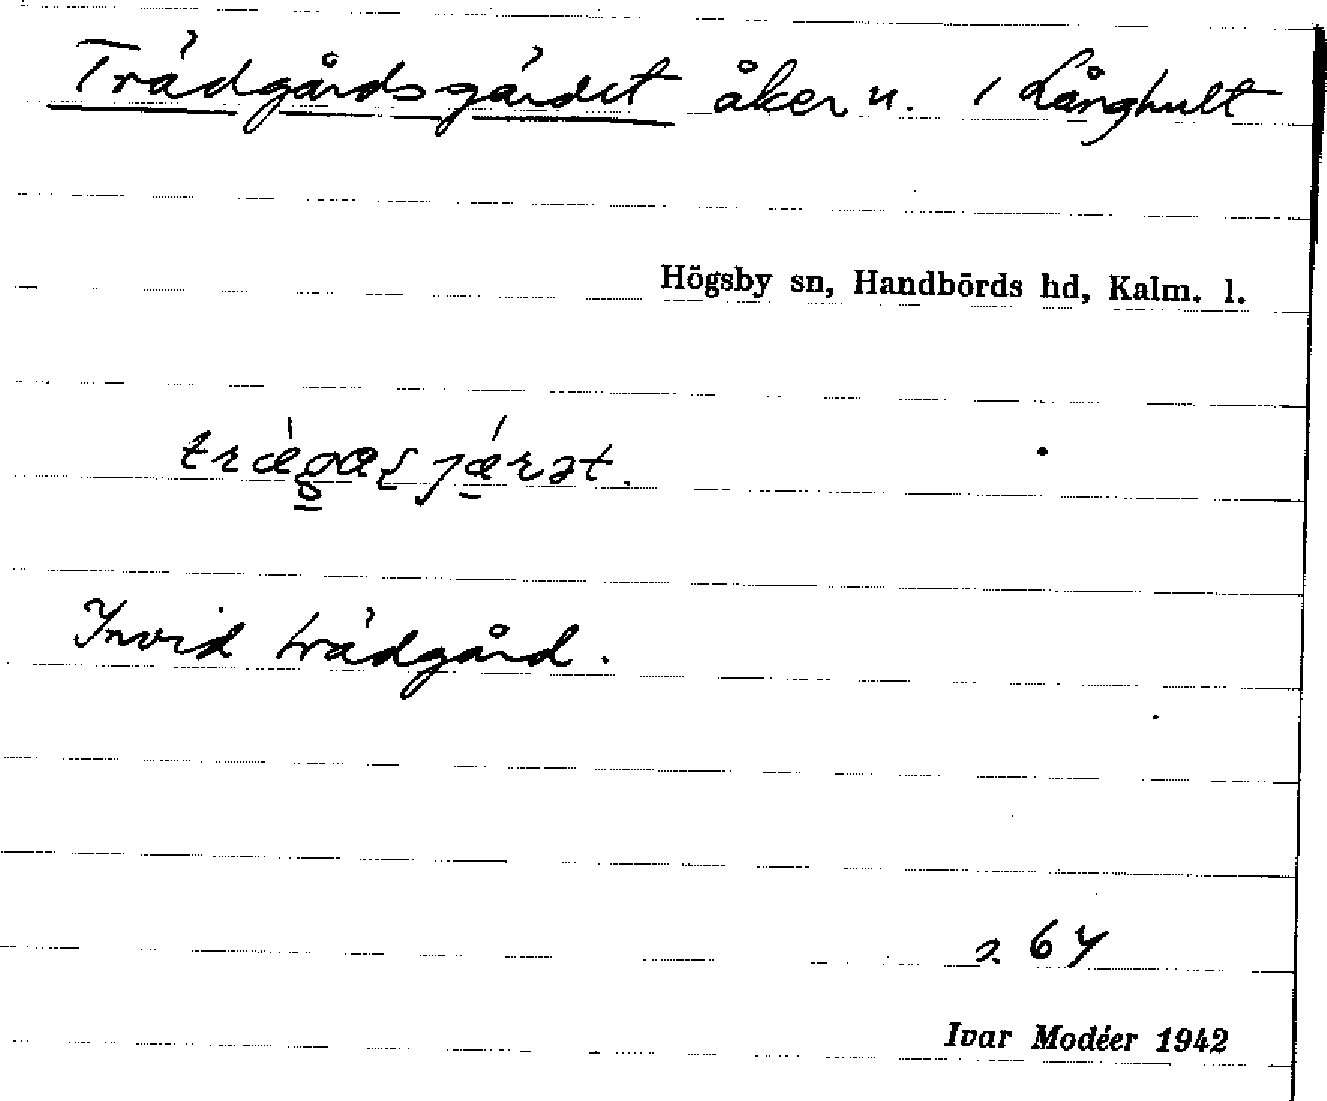 Trädgårdsgärdet åker n. i Långhult
Högsby sn, Handbörds hd, Kalm. l.
Invid trädgård.
2 64
Ivar Modéer 1942